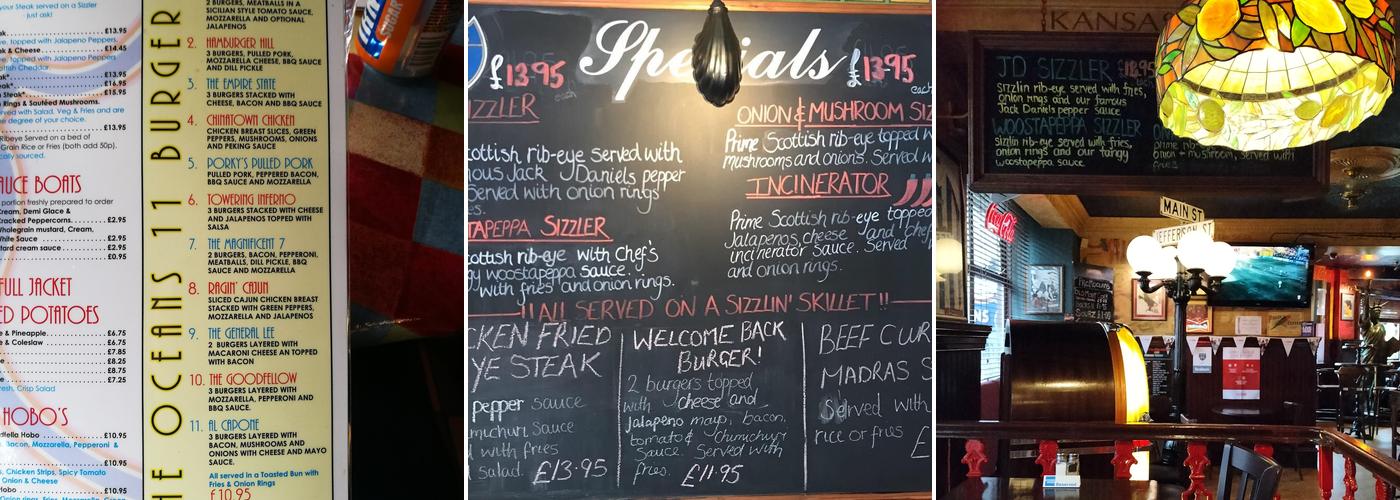 your Steak served on a Sizzler
just ask!
£13.95
topped with Jalapeno Peppers,
ak & Cheese £14.45
£13.95
£16.95
£15.95
Rings & Sautéed Mushrooms.
served with Salad. Veg & Fries and are
the degree of your choice.
£13.95
Ribeye Served on a bed of
Grain Rice or Fries (both add 50p).
cally sourced.
AUCE BOATS
portion freshly prepared to order
Cream, Demi Glace &
Cracked Peppercorns. £2.95
Wholegrain mustard, Cream,
White Sauce £2.95
tard cream sauce £2.95
£0.95
FULL JACKET
ED POTATOES
e & Pineapple £6.75
e & Coleslaw £6.75
£7.85
£8.25
£8.75
£7.25
resh, Crisp Salad
HOBO'S
della Hobo £10.95
Bacon, Mozzarella, Pepperoni &
£10.95
s, Chicken Strips, Spicy Tomato
Onion & Cheese
£10.95
HE OCEANS 11 BURGER
2 BURGERS, MEATBALLS IN A
SICILIAN STYLE TOMATO SAUCE,
MOZZARELLA AND OPTIONAL
JALAPENOS
2. HAMBURGER HILL
3 BURGERS, PULLED PORK,
MOZZARELLA CHEESE, BBQ SAUCE
AND DILL PICKLE
3. THE EMPIRE STATE
3 BURGERS STACKED WITH
CHEESE, BACON AND BBQ SAUCE
4. CHINATOWN CHICKEN
CHICKEN BREAST SLICES, GREEN
PEPPERS, MUSHROOMS, ONIONS
AND PEKING SAUCE
5. PORKY'S PULLED PORK
PULLED PORK, PEPPERED BACON,
BBQ SAUCE AND MOZZARELLA
6. TOWERING INFERNO
3 BURGERS STACKED WITH CHEESE
AND JALAPENOS TOPPED WITH
SALSA
7. THE MAGNIFICENT 7
2 BURGERS, BACON, PEPPERONI,
MEATBALLS, DILL PICKLE, BBQ
SAUCE AND MOZZARELLA
8. RAGIN' CAJUN
SLICED CAJUN CHICKEN BREAST
STACKED WITH GREEN PEPPERS,
MOZZARELLA AND JALAPENOS
9. THE GENERAL LEE
2 BURGERS LAYERED WITH
MACARONI CHEESE AN TOPPED
WITH BACON
10. THE GOODFELLOW
3 BURGERS LAYERED WITH
MOZZARELLA, PEPPERONI AND
BBQ SAUCE.
11. AL CAPONE
3 BURGERS LAYERED WITH
BACON, MUSHROOMS AND
ONIONS WITH CHEESE AND MAYO
SAUCE.
All served in a Toasted Bun with
Fries & Onion Rings
£10.95
SUGAR
Specials
£13.95 each
£13.95 each
IZZLER
cottish rib-eye served with
mous Jack Daniels pepper
served with onion rings
es.
TAPEPPA SIZZLER
cottish rib-eye with Chef's
gy woostapeppa sauce.
with fries and onion rings.
ONION & MUSHROOM SIZ
Prime Scottish rib-eye topped w
mushrooms and onions. Served w
INCINERATOR
Prime Scottish rib-eye topped
Jalapenos, cheese and Chef
incinerator Sauce. Served
and onion rings.
!!All SERVED ON A SIZZLIN' SKILLET!!
CKEN FRIED
YE STEAK
pepper sauce
michuri sauce
d with fries
salad. £13.95
WELCOME BACK
BURGER!
2 burgers topped
with cheese and
Jalapeno mayo, bacon,
tomato & chumichuri
Sauce. Served with
fries. £11.95
BEEF CUR
MADRAS S
Served with
rice or fries
£
KANSA
JD SIZZLER £13.95
Sizzlin rib-eye served with fries,
onion rings and our famous
Jack Daniels pepper sauce
WOOSTAPEPPA SIZZLER
sizzlin rib-eye served with fries,
onion rings and our tangy
woostapeppa sauce.
MAIN ST
JEFFERSON ST
Coca-Cola
Reserved